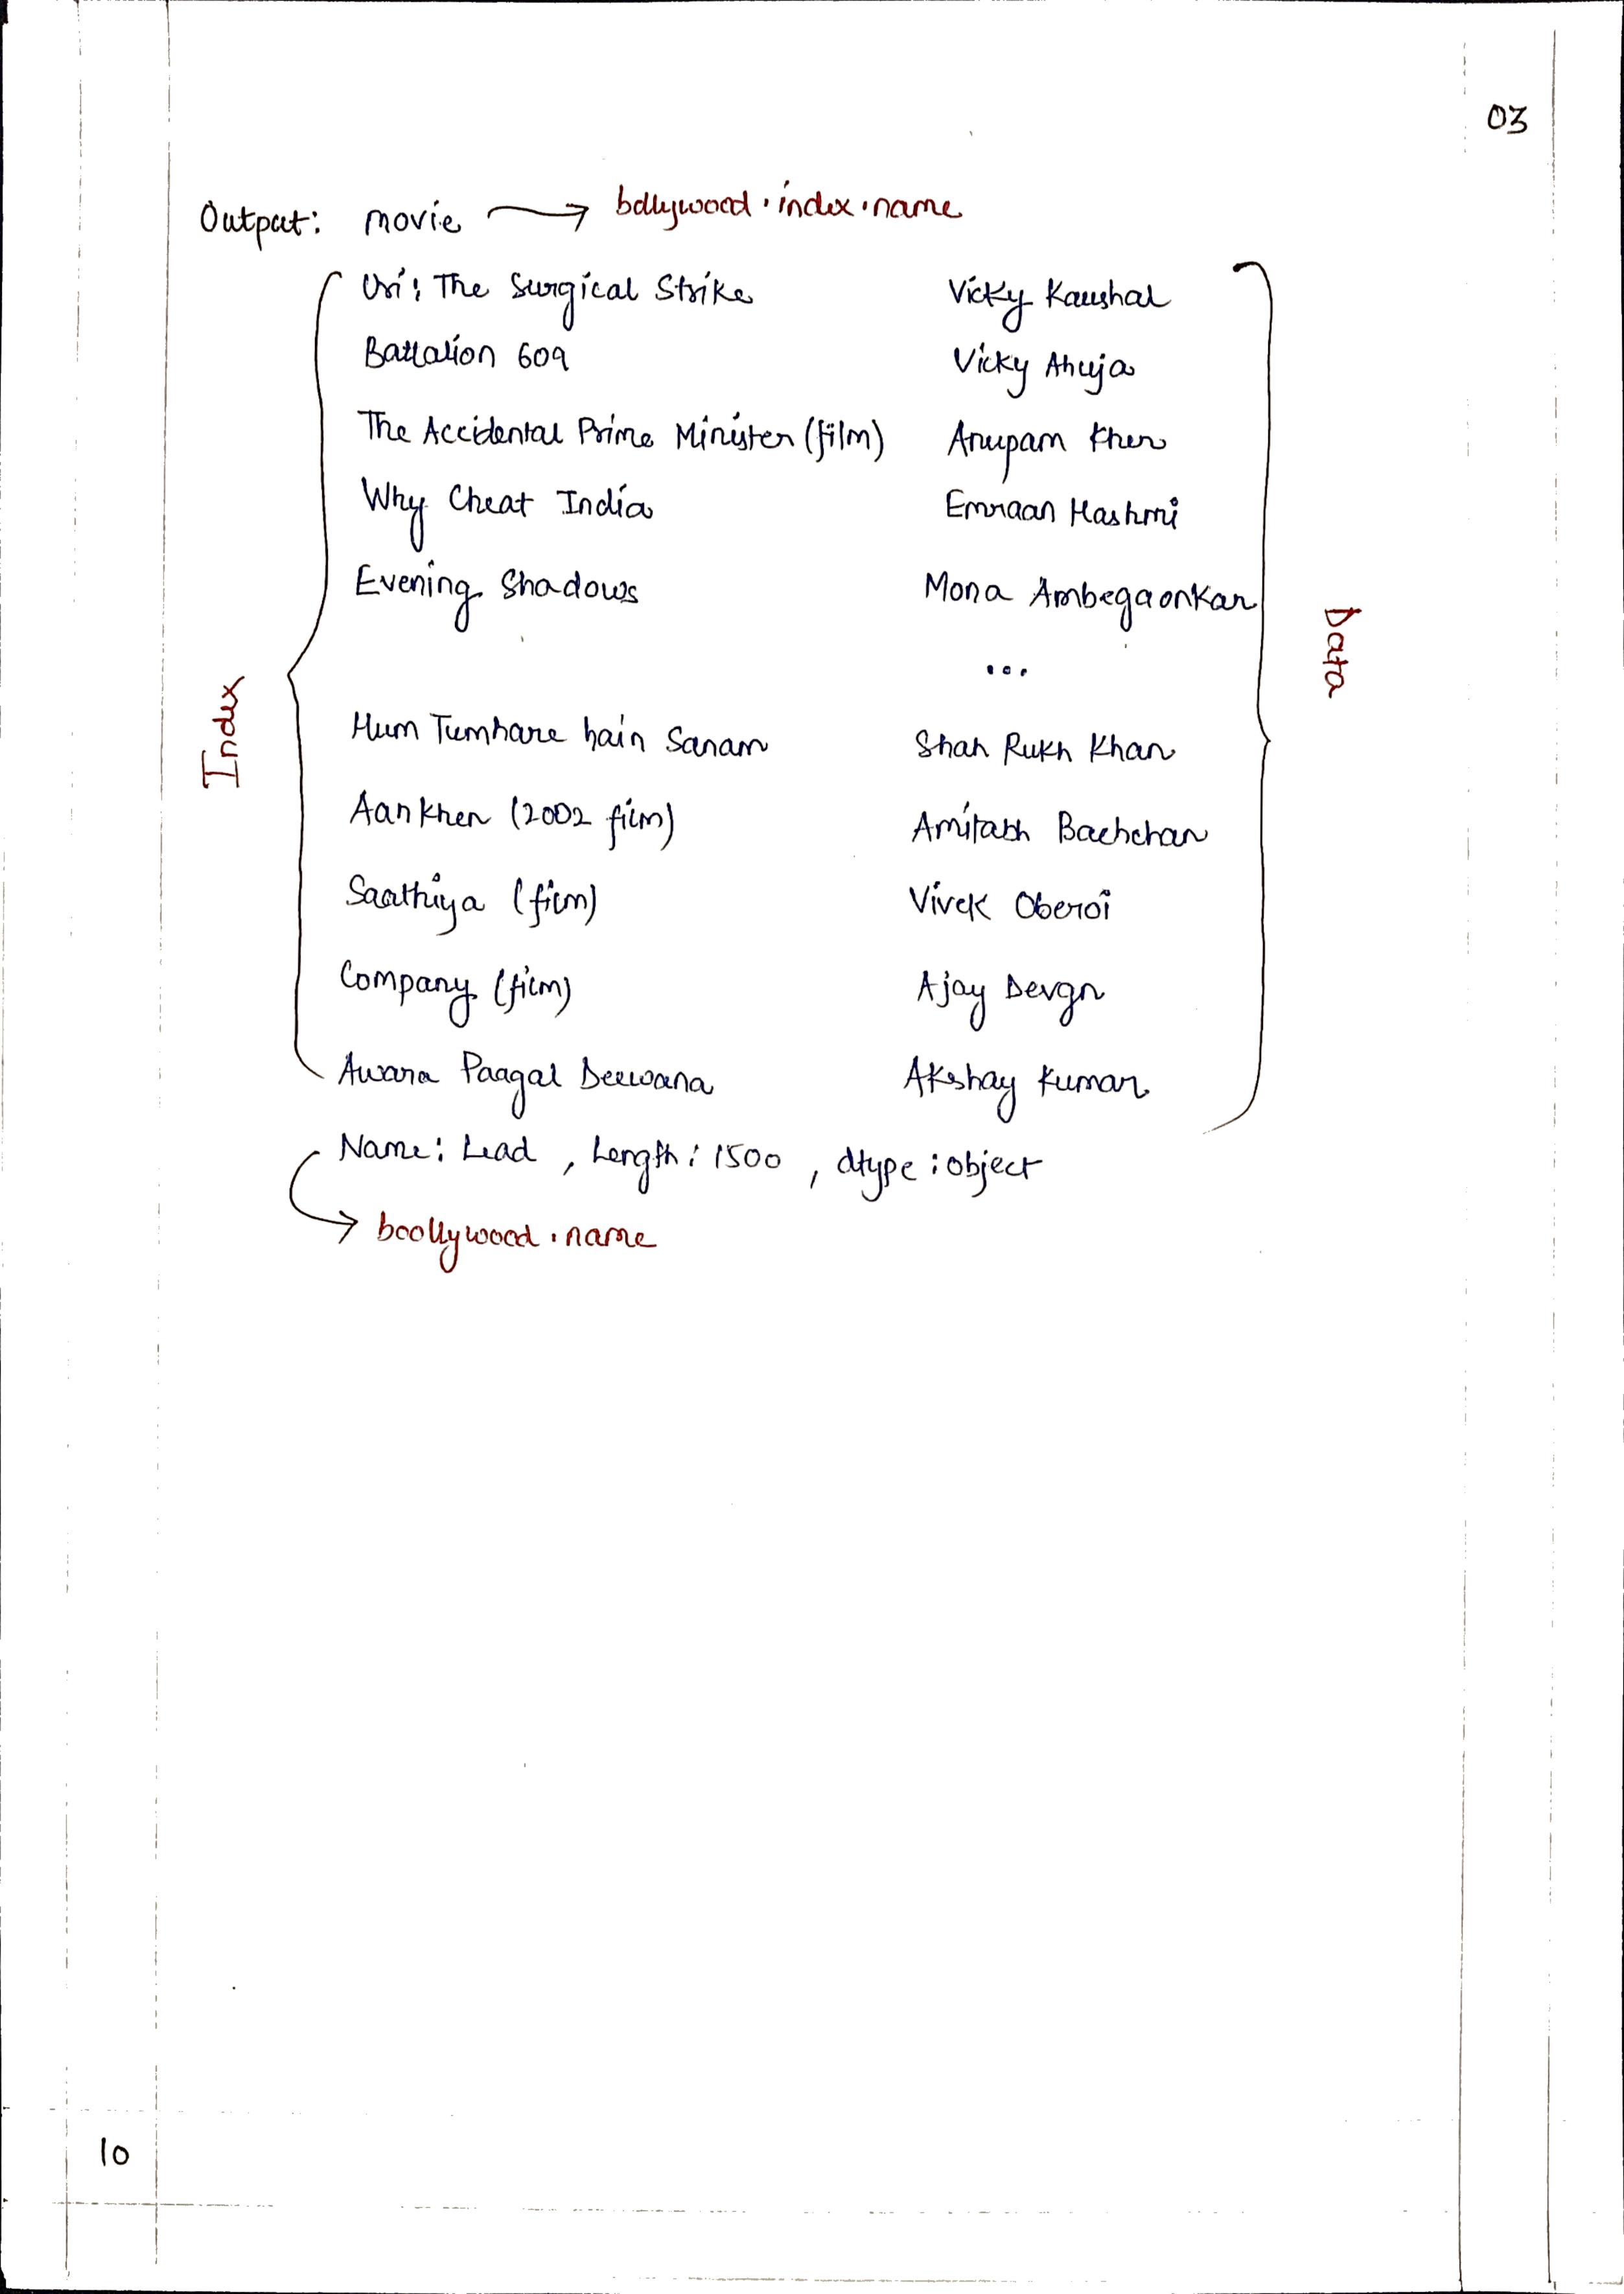 03
Output: movie → bollywood.index.name
Uri: The Surgical Strike Vicky Kaushal
Battalion 609 Vicky Ahuja
The Accidental Prime Minister (film) Anupam Kher
Why Cheat India Emraan Hashmi
Evening Shadows Mona Ambegaonkar
...
Hum Tumhare hain Sanam Shah Rukh Khan
Aankhen (2002 film) Amitabh Bachchan
Saathiya (film) Vivek Oberoi
Company (film) Ajay Devgn
Awara Paagal Deewana Akshay Kumar
Index
Data
Name: Lead, Length: 1500, dtype: object
→ boollywood.name
10